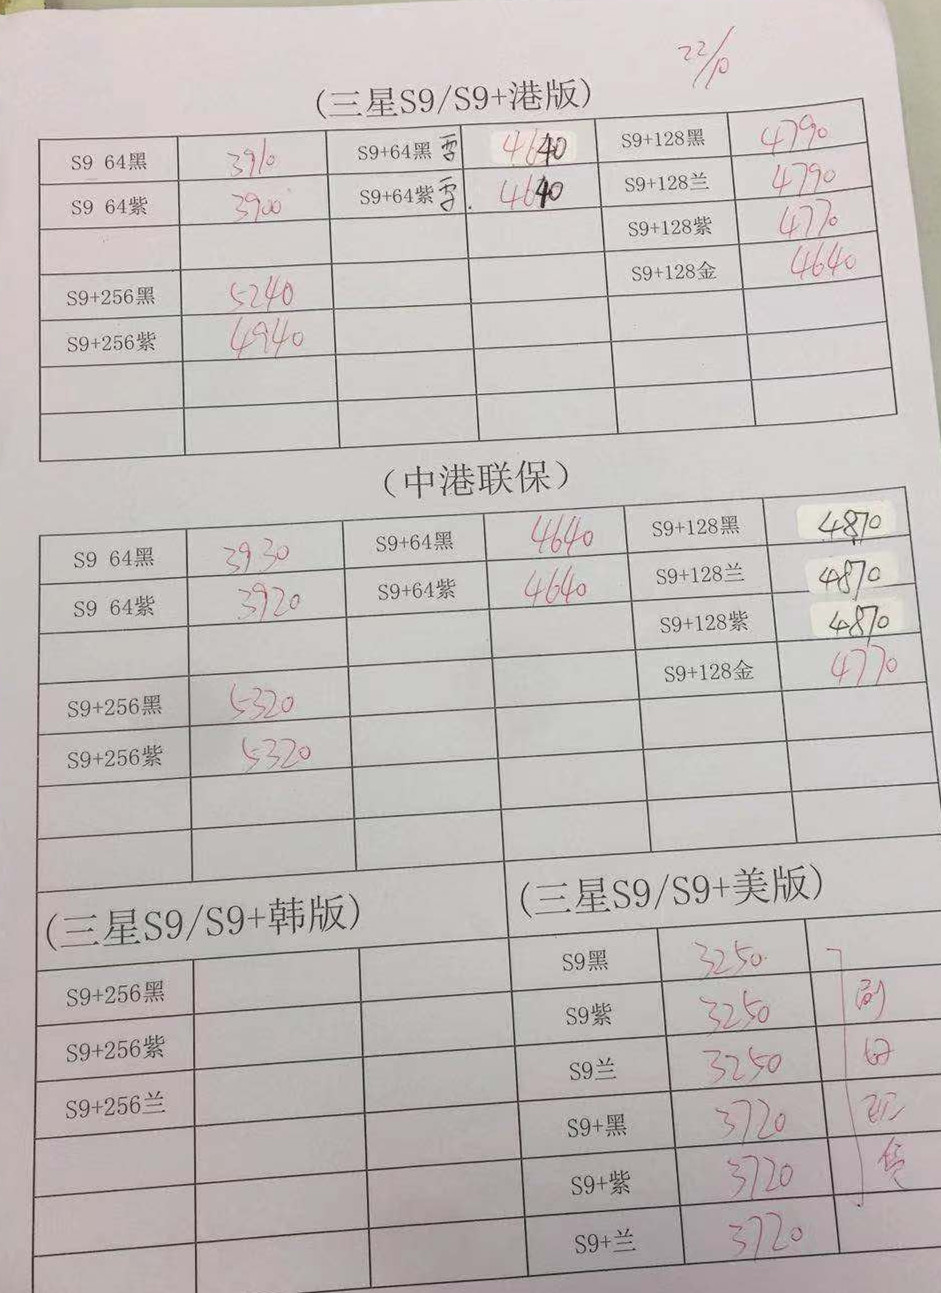 22/10
(三星S9/S9+港版)
S9 64黑 3910 S9+64黑 4640 S9+128黑 4790
S9 64紫 3900 S9+64紫 4640 S9+128兰 4790
S9+128紫 4770
S9+256黑 5240 S9+128金 4640
S9+256紫 4940
（中港联保）
S9 64黑 3930 S9+64黑 4640 S9+128黑 4870
S9 64紫 3920 S9+64紫 4640 S9+128兰 4870
S9+128紫 4870
S9+256黑 5320 S9+128金 4770
S9+256紫 5320
(三星S9/S9+韩版)
S9+256黑
S9+256紫
S9+256兰
(三星S9/S9+美版)
S9黑 3250
S9紫 3250
S9兰 3250
S9+黑 3720
S9+紫 3720
S9+兰 3720